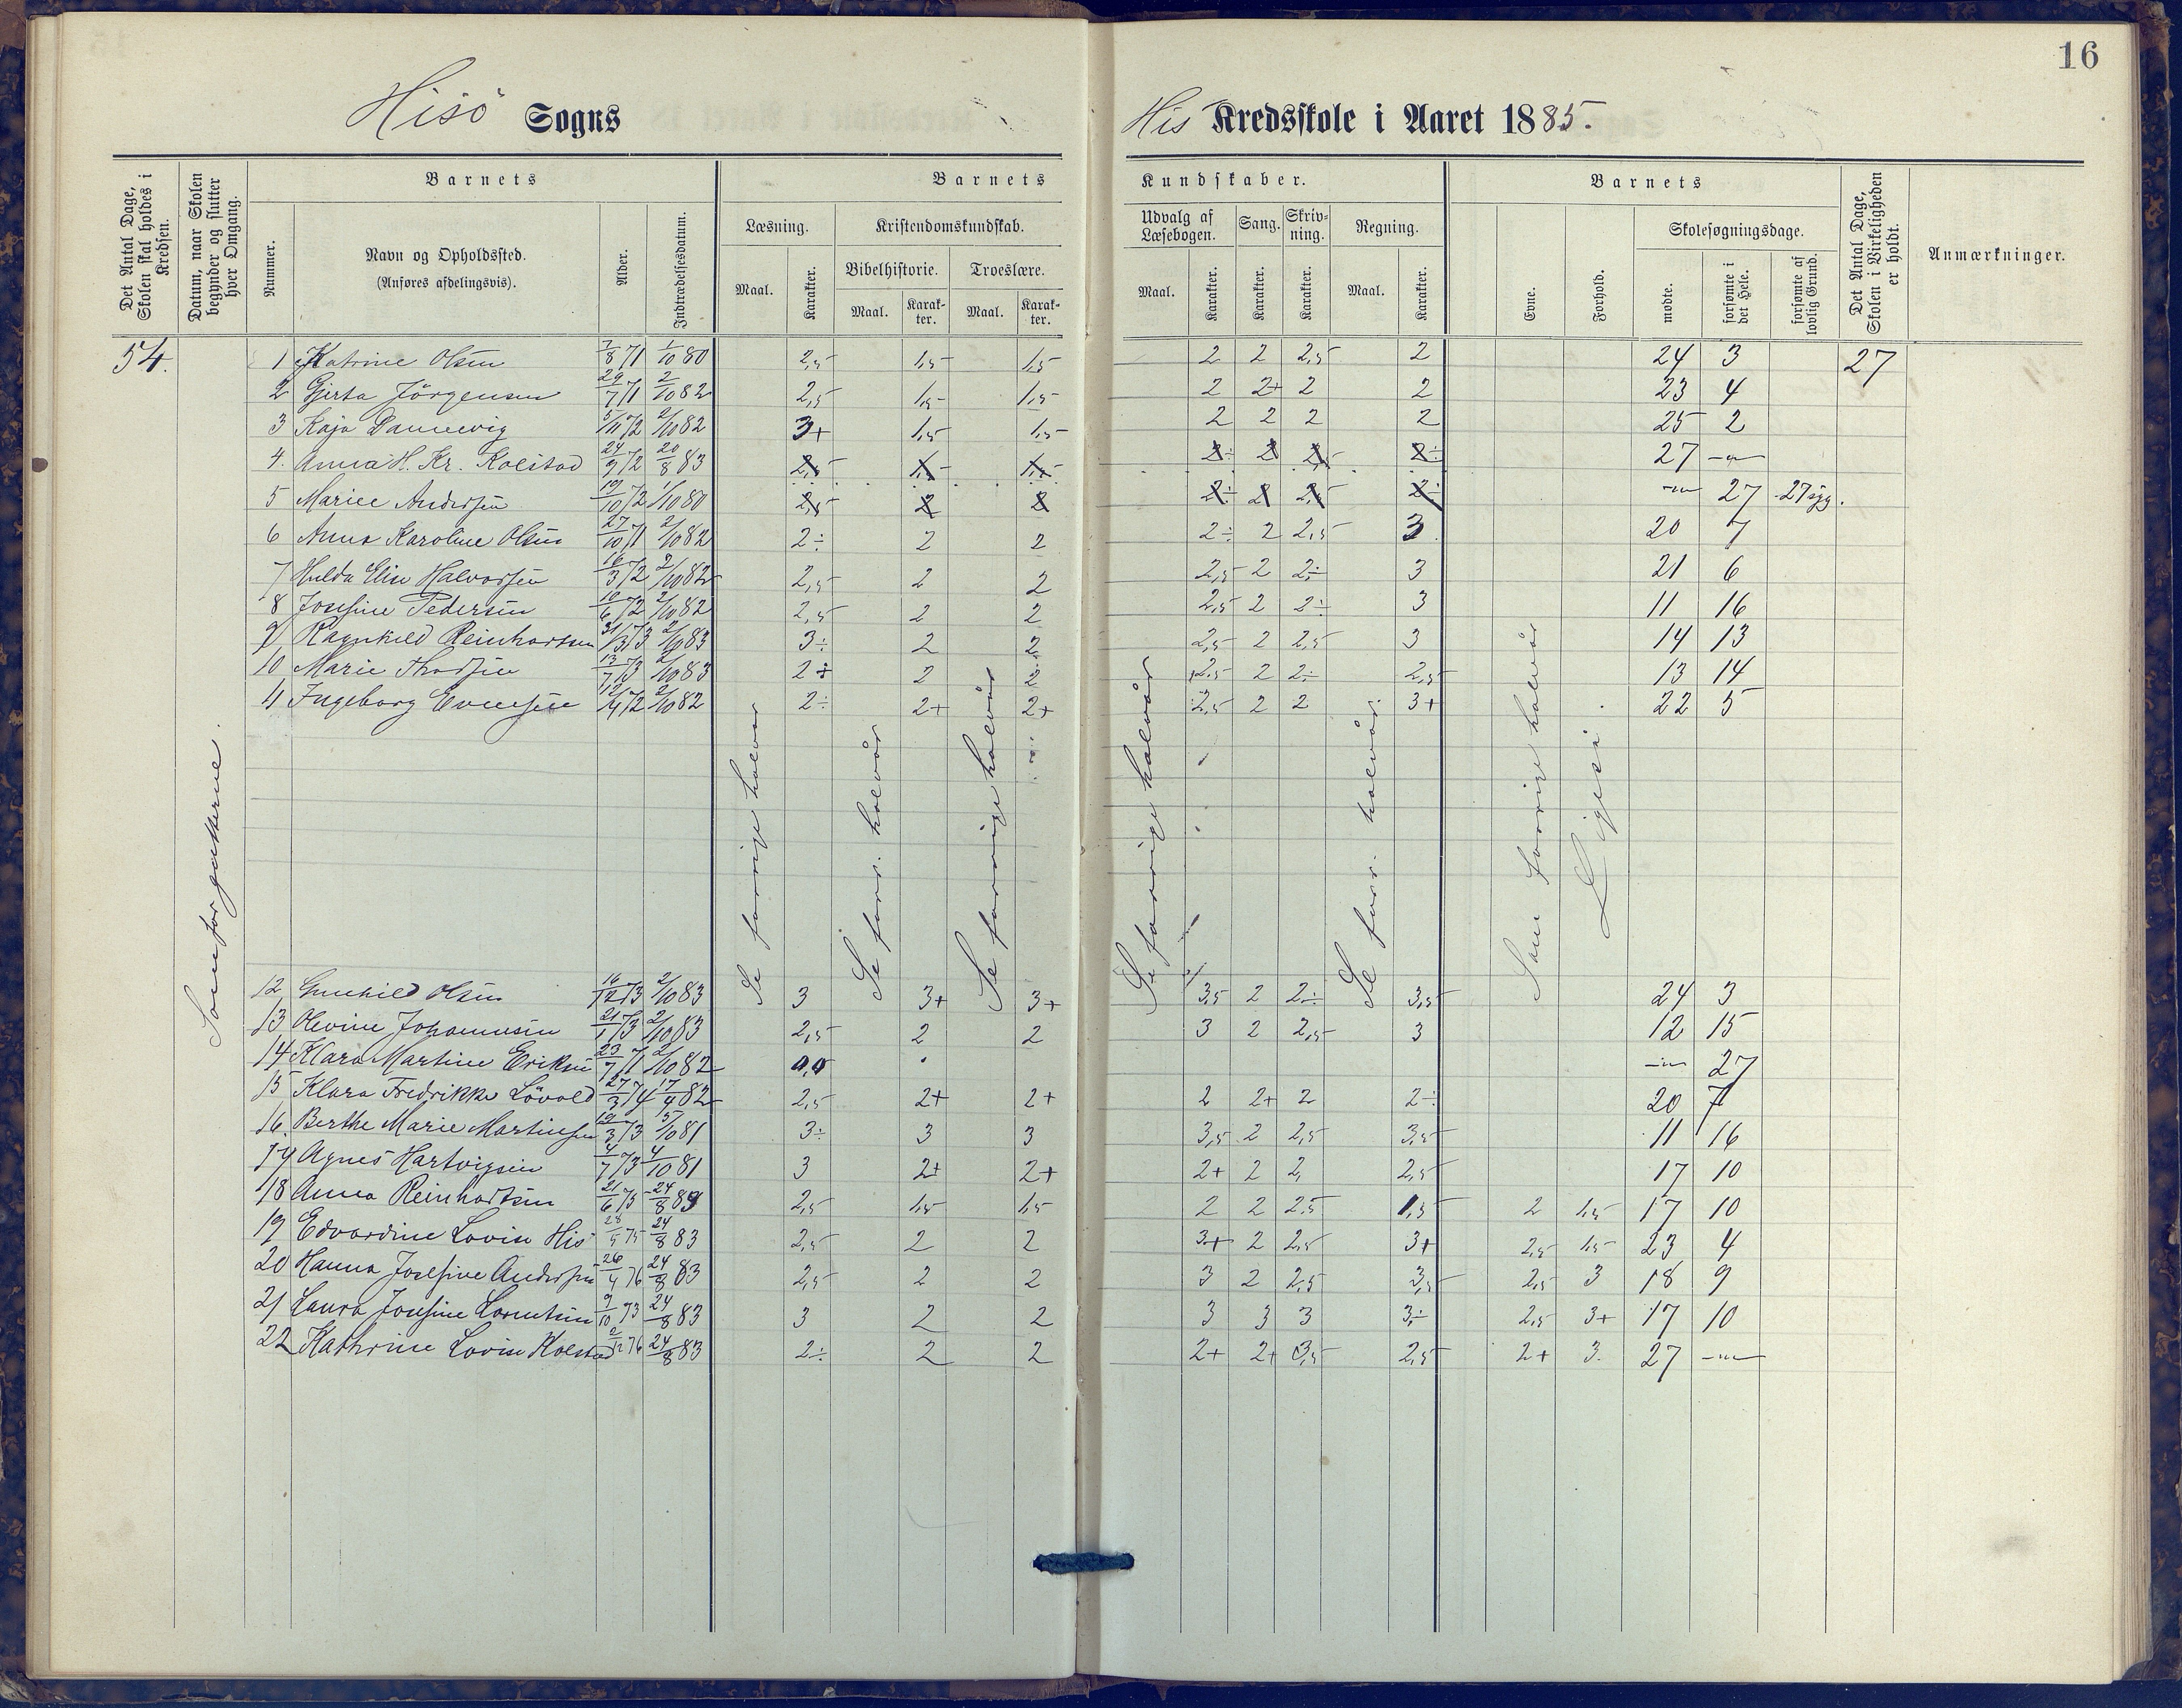 16
Hisö Sogns His Kredsskole i Aaret 1885.
Det Antal Dage, Skolen skal holdes i Kredsen.
Datum, naar Skolen begynder og slutter hver Omgang.
Barnets
Nummer.
Navn og Opholdssted.
(Anføres afdelingsvis).
Alder.
Indtrædelsesdatum.
Barnets Kundskaber.
Læsning.
Maal.
Karakter.
Kristendomskundskab.
Bibelhistorie.
Maal.
Karakter.
Troeslære.
Maal.
Karakter.
Udvalg af Læsebogen.
Maal.
Karakter.
Sang.
Karakter.
Skrivning.
Karakter.
Regning.
Maal.
Karakter.
Barnets
Evne.
Forhold.
Skolesøgningsdage.
mødte.
forsømte i det Hele.
forsømte af lovlig Grund.
Det Antal Dage, Skolen i Virkeligheden er holdt.
Anmærkninger.
54. 1 Katrine Olsen 7/8 71 1/10 80 2,5 1,5 1,5 2 2 2,5 2 24 3 27
2 Gjerta Jörgensen 29/7 71 2/10 82 2,5 1,5 1,5 2 2+ 2 2 23 4
3 Kaja Dannevig 5/11 72 2/10 82 3+ 1,5 1,5 2 2 2 2 25 2
4. Anna H. Kr. Kolstad 24/9 72 20/8 83 2,5 1,5 1,5 2÷ 2 2,5 2÷ 27 -"-
5 Marie Andersen 19/10 72 1/10 80 2,5 2 2 2÷ 2 2,5 2÷ -"- 27 27 syg.
6 Anna Karoline Olsen 27/10 71 2/10 82 2÷ 2 2 2÷ 2 2,5 3 20 7
7 Hulda Elise Halvorsen 16/3 72 2/10 82 2,5 2 2 2,5 2 2÷ 3 21 6
8 Josefine Pedersen 10/6 72 2/10 82 2,5 2 2 2,5 2 2÷ 3 11 16
9 Ragnhild Reinhartsen 31/3 73 2/10 83 3÷ 2 2 2,5 2 2,5 3 14 13
10 Marie Thorsen 13/7 73 2/10 83 2÷ 2 2 2,5 2 2÷ 2,5 13 14
11 Ingeborg Evensen 12/4 72 2/10 82 2÷ 2+ 2+ 2,5 2 2 3+ 22 5
Som for gutterne.
Se forrige halvår
Se forr. halvår
Se forrige halvår
Se forrige halvår
Se forr. halvår
Som forrige halvår
Ligeså
12 Gunhild Olsen 16/12 73 2/10 83 3 3+ 3+ 3,5 2 2÷ 3,5 24 3
13 Olevine Johannesen 21/1 73 2/10 83 2,5 2 2 3 2 2,5 3 12 15
14 Klara Martine Eriksen 23/7 71 2/10 82 0,0 -"- 27
15 Klara Fredrikke Lövold 27/3 74 17/4 82 2,5 2+ 2+ 2 2+ 2 2÷ 20 7
16. Berthe Marie Martinsen 19/3 73 5/10 81 3÷ 3 3 3,5 2 2,5 3,5 11 16
17 Agnes Hartvigsen 4/7 73 4/10 81 3 2+ 2+ 2+ 2 2 2,5 17 10
18 Anna Reinhartsen 21/6 75 24/8 83 2,5 1,5 1,5 2 2 2.5 1,5 2 1,5 17 10
19 Edvardine Lovise His 28/5 75 24/8 83 2,5 2 2 3+ 2 2,5 3+ 2,5 1,5 23 4
20 Hanna Josefine Andersen 26/4 76 24/8 83 2,5 2 2 3 2 2,5 3,5 2,5 3 18 9
21 Laura Josefine Lorentsen 9/10 73 24/8 83 3 2 2 3 3 3 3÷ 2,5 3+ 17 10
22 Kathrine Lovise Kolstad 2/12 76 24/8 83 2÷ 2 2 2+ 2+ 3,5 2,5 2+ 3. 27 -"-